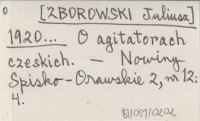 o [ZBOROWSKI Juliusz]
1920... O agitatorach
czeskich. — Nowiny
Spisko-Orawskie 2, nr 12:
4.